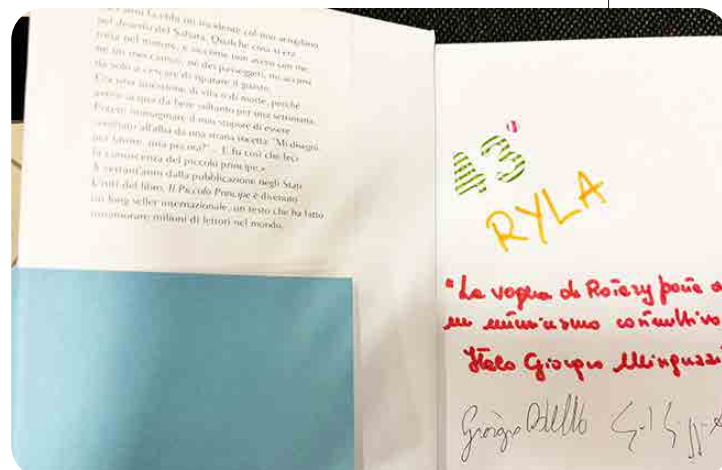 anni fa ebbi un incidente col mio aeroplano
nel deserto del Sahara. Qualche cosa si era
rotta nel motore, e siccome non avevo con me
né un meccanico, né dei passeggeri, mi accinsi
da solo a cercare di riparare il guasto.
Era una questione di vita o di morte, perché
acqua da bere soltanto per una settimana.
Potete immaginare il mio stupore di essere
svegliato all'alba da una strana vocetta: "Mi disegni,
per favore, una pecora?" ... E fu così che feci
la conoscenza del piccolo principe.»
A settant'anni dalla pubblicazione negli Stati
Uniti del libro, Il Piccolo Principe è divenuto
un long seller internazionale, un testo che ha fatto
innamorare milioni di lettori nel mondo.
43°
RYLA
"La voglia di Rotary
un
Italo Giorgio Minguzzi
Giorgio